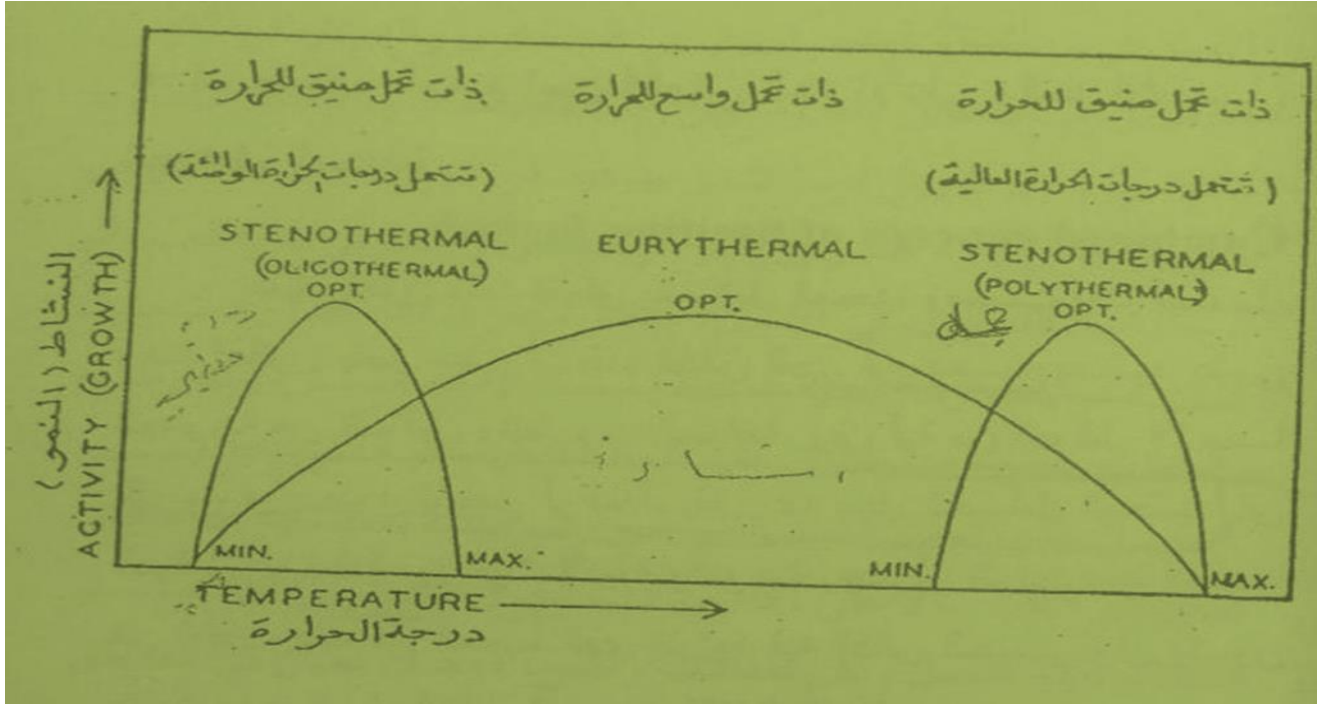 ذات تحمل ضيق للحرارة
ذات تحمل واسع للحرارة
ذات تحمل ضيق للحرارة
(تتحمل درجات الحرارة الواطئة)
(تتحمل درجات الحرارة العالية)
STENOTHERMAL
(OLIGOTHERMAL)
OPT.
EURYTHERMAL
OPT.
STENOTHERMAL
(POLYTHERMAL)
OPT.
النشاط (النمو)
ACTIVITY (GROWTH)
MIN.
MAX.
MIN.
MAX.
TEMPERATURE
درجة الحرارة